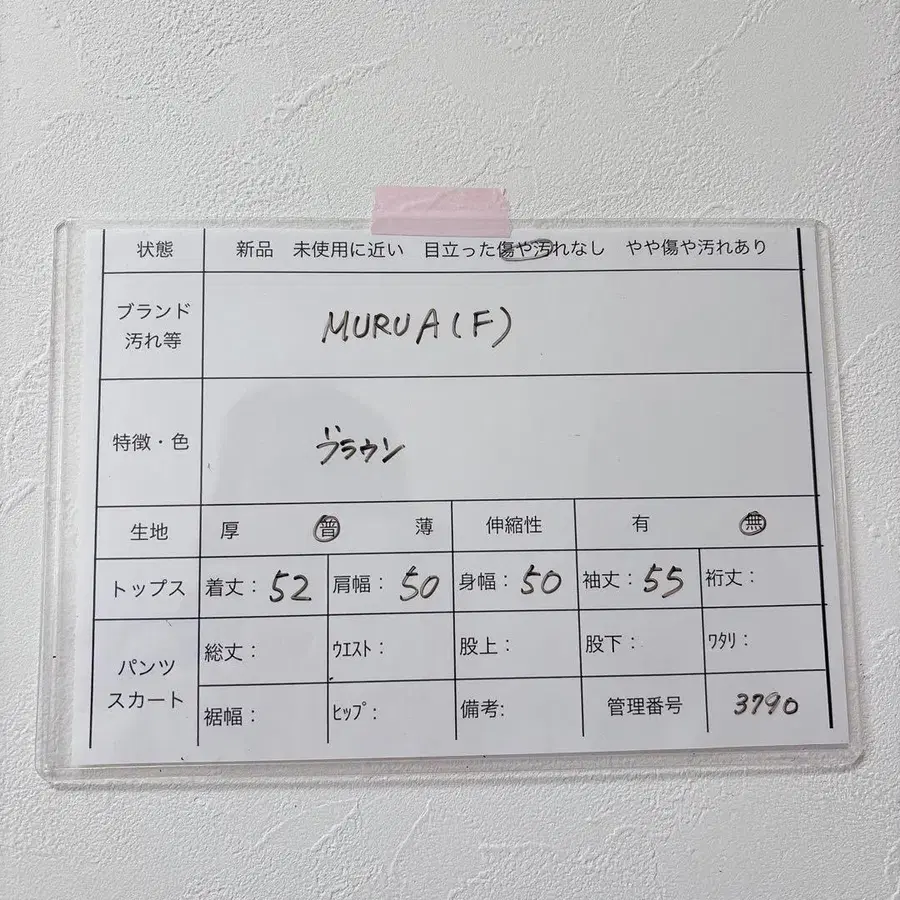 状態 新品 未使用に近い 目立った傷や汚れなし やや傷や汚れあり
ブランド
汚れ等
MURUA(F)
特徴・色 ブラウン
生地 厚 普 薄 伸縮性 有 無
トップス 着丈: 52 肩幅: 50 身幅: 50 袖丈: 55 裄丈:
パンツ
スカート
総丈: ｳｴｽﾄ: 股上: 股下: ﾜﾀﾘ:
裾幅: ﾋｯﾌﾟ: 備考: 管理番号 3790